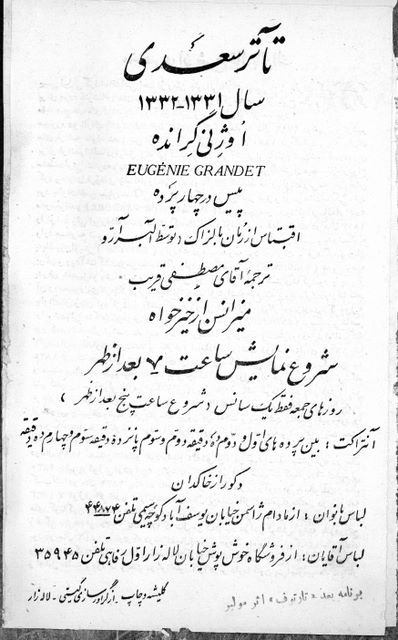 تآتر سعدی
سال ۱۳۳۱-۱۳۳۲
اوژنی گرانده
EUGÉNIE GRANDET
پیس در چهار پرده
اقتباس از رمان بالزاک، توسط آلبر آررو
ترجمهٔ آقای مصطفی قریب
میزانسن از خیرخواه
شروع نمایش ساعت ۷ بعد از ظهر
روزهای جمعه فقط یک سانس (شروع ساعت پنج بعد از ظهر)
آنتراکت: بین پرده‌های اول و دوم ده دقیقه دوم و سوم پانزده دقیقه سوم و چهارم ده دقیقه
دکور از خاکدان
لباس بانوان: از مادام ژاسمن خیابان یوسف آباد کوچه سیمی تلفن ۴۴۸۷۴
لباس آقایان: از فروشگاه خوش پوش خیابان لاله زار اول رفاهی تلفن ۳۵۹۴۵
برنامه بعد «تارتوف» اثر مولیر
کلیشه و چاپ از گراورسازی گیتی - لاله زار